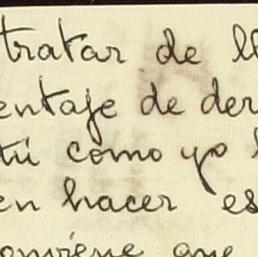 tratar de ll
entaje de der
tú como yo l
en hacer es
onviene que